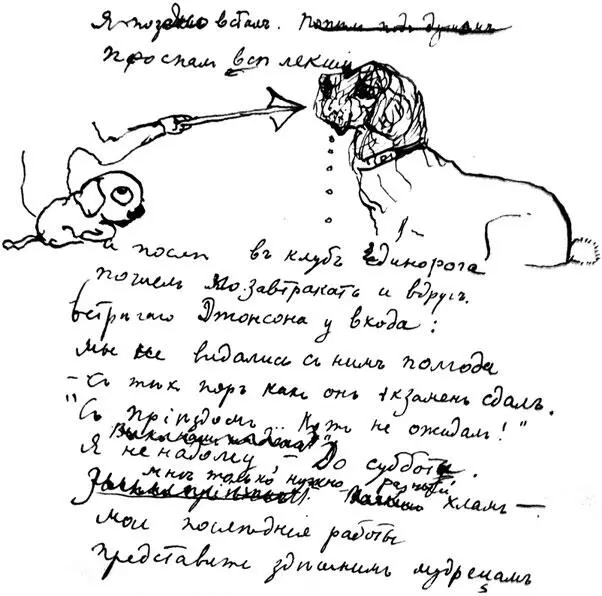 Я поздно всталъ.
проспал всѣ лекции
и послѣ въ клубъ Единорога
пошелъ позавтракать и вдругъ
встрѣчаю Джонсона у входа:
мы не видались съ нимъ полгода
– съ тѣхъ поръ какъ онъ экзаменъ сдалъ.
"Съ пріѣздомъ... Вотъ не ожидалъ!"
Я не надолго – До субботы.
мнѣ только нужно разный
хламъ –
мои послѣднія работы
представить здѣшнимъ мудрецамъ